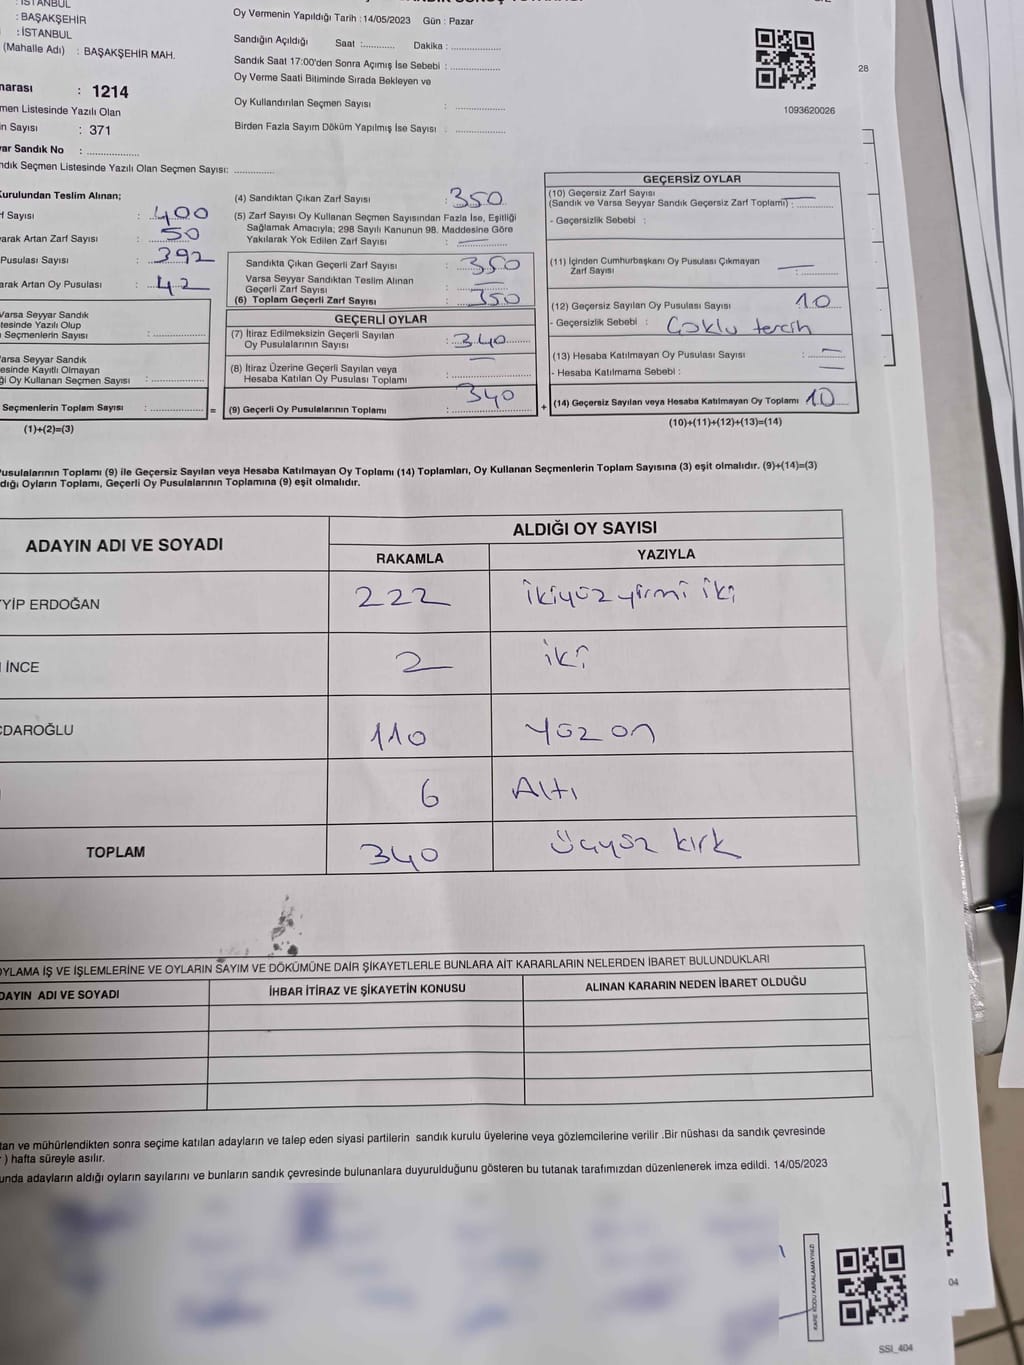 : İSTANBUL
: BAŞAKŞEHİR
: İSTANBUL
(Mahalle Adı) : BAŞAKŞEHİR MAH.
: 1214
men Listesinde Yazılı Olan
n Sayısı : 371
ar Sandık No : ..................
ndık Seçmen Listesinde Yazılı Olan Seçmen Sayısı: .............
Oy Vermenin Yapıldığı Tarih : 14/05/2023 Gün : Pazar
Sandığın Açıldığı Saat :............ Dakika : ................
Sandık Saat 17:00'den Sonra Açımış İse Sebebi : ................
Oy Verme Saati Bitiminde Sırada Bekleyen ve
Oy Kullandırılan Seçmen Sayısı : ................
Birden Fazla Sayım Döküm Yapılmış İse Sayısı : ................
1093620026
28
urulundan Teslim Alınan;
f Sayısı : 400
arak Artan Zarf Sayısı : 50
Pusulası Sayısı : 392
arak Artan Oy Pusulası : 42
Varsa Seyyar Sandık
tesinde Yazılı Olup
Seçmenlerin Sayısı : ................
arsa Seyyar Sandık
esinde Kayıtlı Olmayan
ği Oy Kullanan Seçmen Sayısı : ................
Seçmenlerin Toplam Sayısı : ................ =
(1)+(2)=(3)
(4) Sandıktan Çıkan Zarf Sayısı : 350
(5) Zarf Sayısı Oy Kullanan Seçmen Sayısından Fazla İse, Eşitliği
Sağlamak Amacıyla; 298 Sayılı Kanunun 98. Maddesine Göre
Yakılarak Yok Edilen Zarf Sayısı : —
Sandıkta Çıkan Geçerli Zarf Sayısı : 350
Varsa Seyyar Sandıktan Teslim Alınan
Geçerli Zarf Sayısı : —
(6) Toplam Geçerli Zarf Sayısı : 350
GEÇERLİ OYLAR
(7) İtiraz Edilmeksizin Geçerli Sayılan
Oy Pusulalarının Sayısı : 340
(8) İtiraz Üzerine Geçerli Sayılan veya
Hesaba Katılan Oy Pusulası Toplamı : —
(9) Geçerli Oy Pusulalarının Toplamı : 340 +
GEÇERSİZ OYLAR
(10) Geçersiz Zarf Sayısı
(Sandık ve Varsa Seyyar Sandık Geçersiz Zarf Toplamı) : —
- Geçersizlik Sebebi :
(11) İçinden Cumhurbaşkanı Oy Pusulası Çıkmayan
Zarf Sayısı : —
(12) Geçersiz Sayılan Oy Pusulası Sayısı : 10
- Geçersizlik Sebebi : Çoklu tercih
(13) Hesaba Katılmayan Oy Pusulası Sayısı : —
- Hesaba Katılmama Sebebi : —
(14) Geçersiz Sayılan veya Hesaba Katılmayan Oy Toplamı 10
(10)+(11)+(12)+(13)=(14)
usulalarının Toplamı (9) ile Geçersiz Sayılan veya Hesaba Katılmayan Oy Toplamı (14) Toplamları, Oy Kullanan Seçmenlerin Toplam Sayısına (3) eşit olmalıdır. (9)+(14)=(3)
dığı Oyların Toplamı, Geçerli Oy Pusulalarının Toplamına (9) eşit olmalıdır.
ADAYIN ADI VE SOYADI ALDIĞI OY SAYISI
RAKAMLA YAZIYLA
YİP ERDOĞAN 222 ikiyüz yirmi iki
İNCE 2 iki
DAROĞLU 110 yüz on
6 Altı
TOPLAM 340 üçyüz kırk
OYLAMA İŞ VE İŞLEMLERİNE VE OYLARIN SAYIM VE DÖKÜMÜNE DAİR ŞİKAYETLERLE BUNLARA AİT KARARLARIN NELERDEN İBARET BULUNDUKLARI
DAYIN ADI VE SOYADI İHBAR İTİRAZ VE ŞİKAYETİN KONUSU ALINAN KARARIN NEDEN İBARET OLDUĞU
tan ve mühürlendikten sonra seçime katılan adayların ve talep eden siyasi partilerin sandık kurulu üyelerine veya gözlemcilerine verilir .Bir nüshası da sandık çevresinde
) hafta süreyle asılır.
unda adayların aldığı oyların sayılarını ve bunların sandık çevresinde bulunanlara duyurulduğunu gösteren bu tutanak tarafımızdan düzenlenerek imza edildi. 14/05/2023
KARE KODU KARALAMAYINIZ!
SSI_404
04